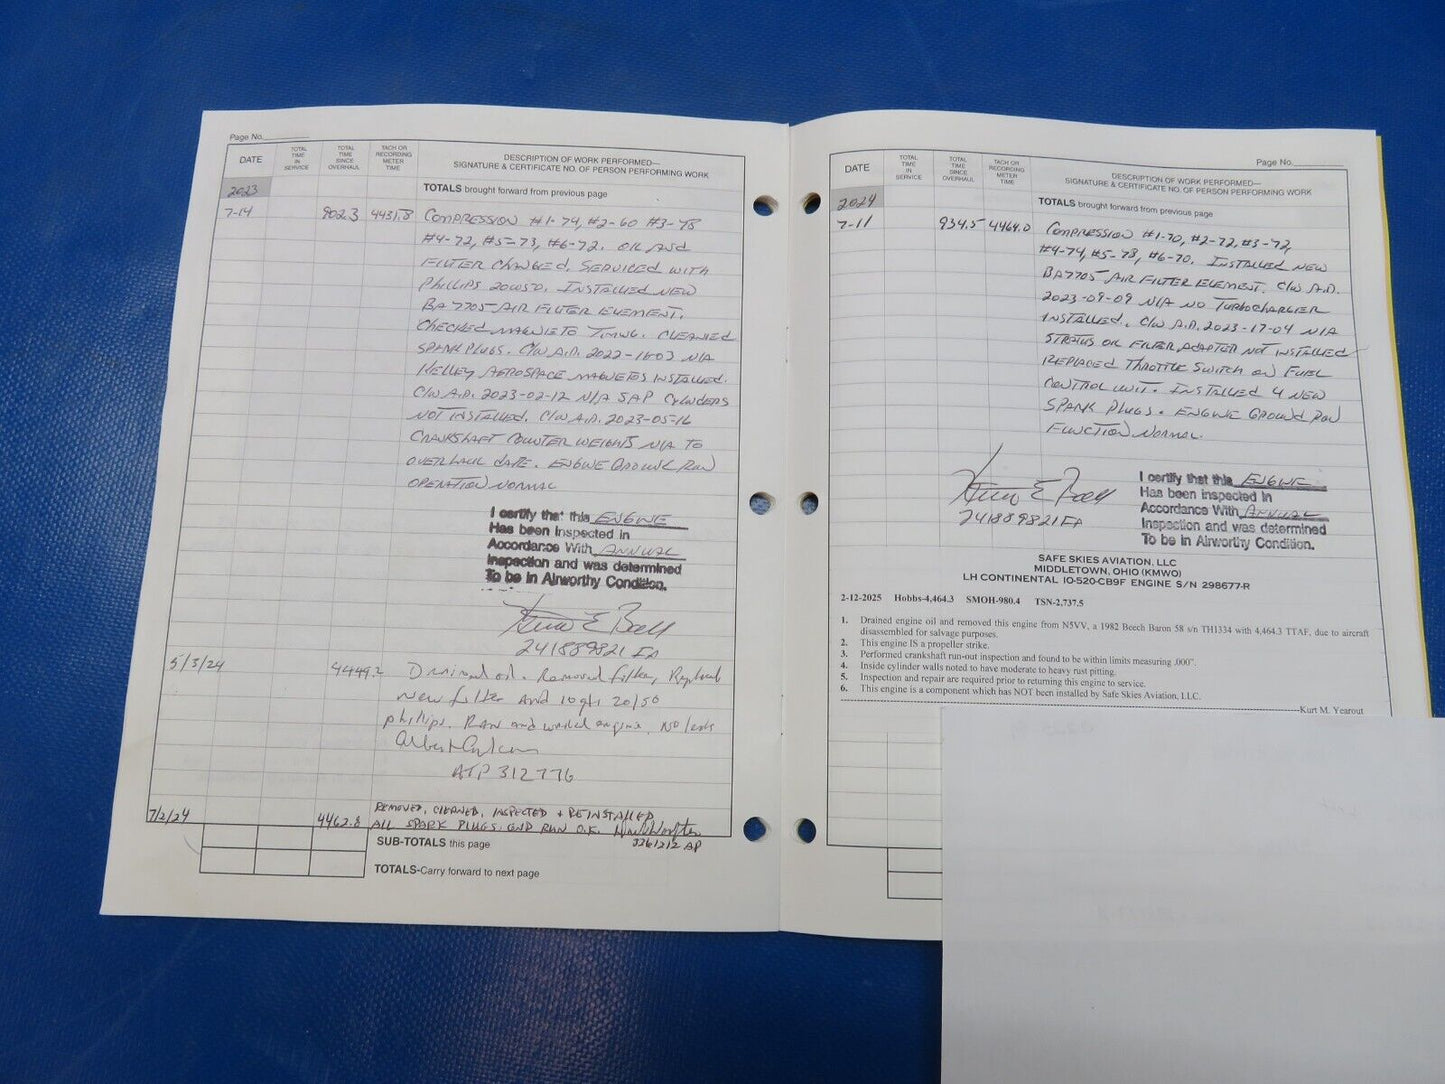 Page No.
DATE
TOTAL TIME IN SERVICE
TOTAL TIME SINCE OVERHAUL
TACH OR RECORDING METER TIME
DESCRIPTION OF WORK PERFORMED—
SIGNATURE & CERTIFICATE NO. OF PERSON PERFORMING WORK
2023
TOTALS brought forward from previous page
7-14 902.3 4431.8 COMPRESSION #1-74, #2-60 #3-78
#4-72, #5-73, #6-72. OIL AND
FILTER CHANGED. SERVICED WITH
PHILLIPS 20W50. INSTALLED NEW
BA7705 AIR FILTER ELEMENT.
CHECKED MAGNETO TIMING. CLEANED
SPARK PLUGS. C/W A.D. 2022-16-03 N/A
KELLEY AEROSPACE MAGNETOS INSTALLED.
C/W A.D. 2023-02-12 N/A SAP CYLINDERS
NOT INSTALLED. C/W A.D. 2023-05-16
CRANKSHAFT COUNTER WEIGHTS N/A TO
OVERHAUL DATE. ENGINE GROUND RUN
OPERATION NORMAL
I certify that this ENGINE
Has been inspected in
Accordance With ANNUAL
Inspection and was determined
To be in Airworthy Condition.
241889821 IA
5/3/24 4449.2 Drained oil. Removed filter, Replaced
New filter and 10 qts 20/50
phillips. Ran and worked engine. No leaks
ATP 312776
7/2/24 4462.8 REMOVED, CLEANED, INSPECTED + REINSTALLED
ALL SPARK PLUGS. GND RUN O.K.
3261212 AP
SUB-TOTALS this page
TOTALS-Carry forward to next page
Page No.
DATE
TOTAL TIME IN SERVICE
TOTAL TIME SINCE OVERHAUL
TACH OR RECORDING METER TIME
DESCRIPTION OF WORK PERFORMED—
SIGNATURE & CERTIFICATE NO. OF PERSON PERFORMING WORK
2024
TOTALS brought forward from previous page
7-11 934.5 4464.0 COMPRESSION #1-70, #2-72, #3-72,
#4-74, #5-78, #6-70. INSTALLED NEW
BA7705 AIR FILTER ELEMENT. C/W A.D.
2023-09-09 N/A NO TURBOCHARGER
INSTALLED. C/W A.D. 2023-17-04 N/A
STRATUS OIL FILTER ADAPTER NOT INSTALLED
REPLACED THROTTLE SWITCH ON FUEL
CONTROL UNIT. INSTALLED 4 NEW
SPARK PLUGS. ENGINE GROUND RUN
FUNCTION NORMAL.
241889821 IA
I certify that this ENGINE
Has been inspected in
Accordance With ANNUAL
Inspection and was determined
To be in Airworthy Condition.
SAFE SKIES AVIATION, LLC
MIDDLETOWN, OHIO (KMWO)
LH CONTINENTAL IO-520-CB9F ENGINE S/N 298677-R
2-12-2025 Hobbs-4,464.3 SMOH-980.4 TSN-2,737.5
1. Drained engine oil and removed this engine from N5VV, a 1982 Beech Baron 58 s/n TH1334 with 4,464.3 TTAF, due to aircraft
disassembled for salvage purposes.
2. This engine IS a propeller strike.
3. Performed crankshaft run-out inspection and found to be within limits measuring .000".
4. Inside cylinder walls noted to have moderate to heavy rust pitting.
5. Inspection and repair are required prior to returning this engine to service.
6. This engine is a component which has NOT been installed by Safe Skies Aviation, LLC.
Kurt M. Yearout